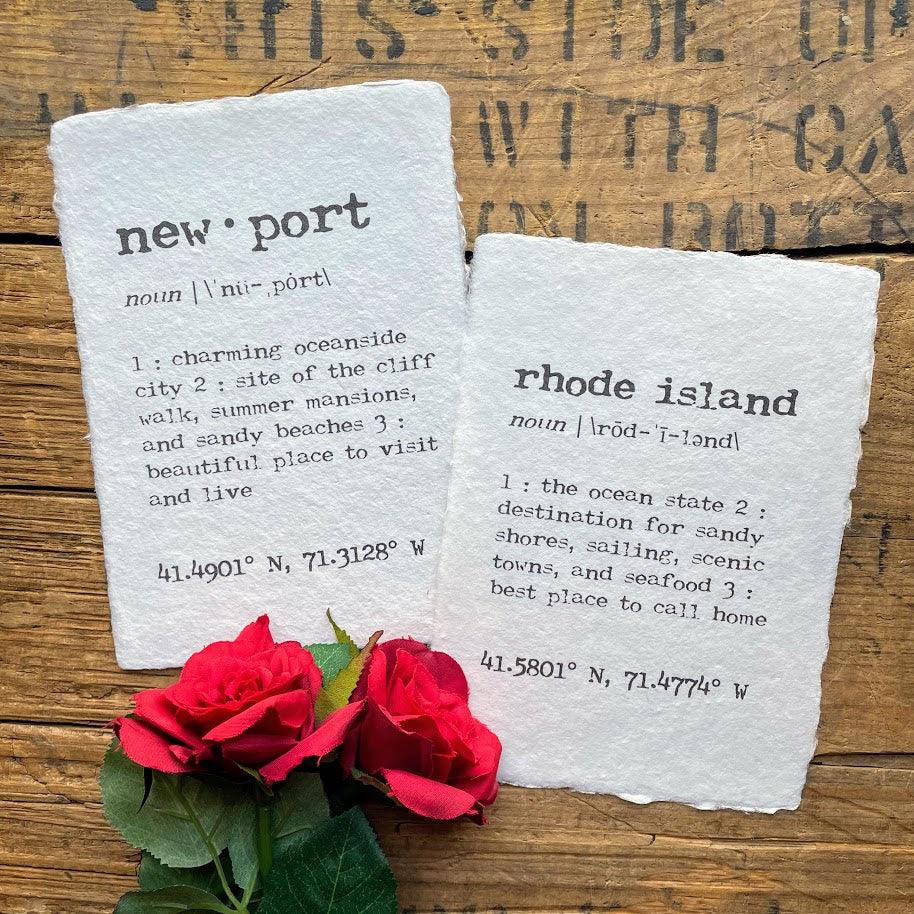 SIDE
WITH CA
new·port
noun | \ˈnü-ˌpȯrt\
1 : charming oceanside
city 2 : site of the cliff
walk, summer mansions,
and sandy beaches 3 :
beautiful place to visit
and live
41.4901° N, 71.3128° W
rhode island
noun | \rōd-ˈī-lənd\
1 : the ocean state 2 :
destination for sandy
shores, sailing, scenic
towns, and seafood 3 :
best place to call home
41.5801° N, 71.4774° W